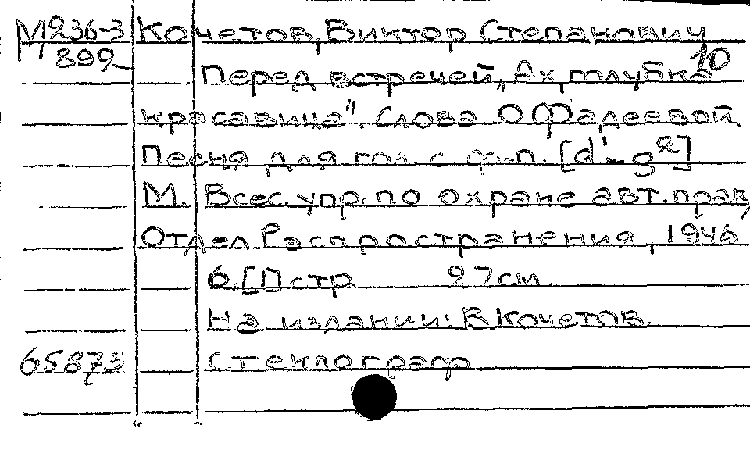 М236-3 Кочетов, Виктор Степанович
892 10
Перед встречей, "Ах, голубка
красавица". Слова О Фадеевой.
Песня для гол. с ф-п. [d'-g²]
М. Всес. упр. по охране авт. прав,
Отдел Распространения, 1946
6 [] стр 27см
На издании: В Кочетов
65873 стеклограф